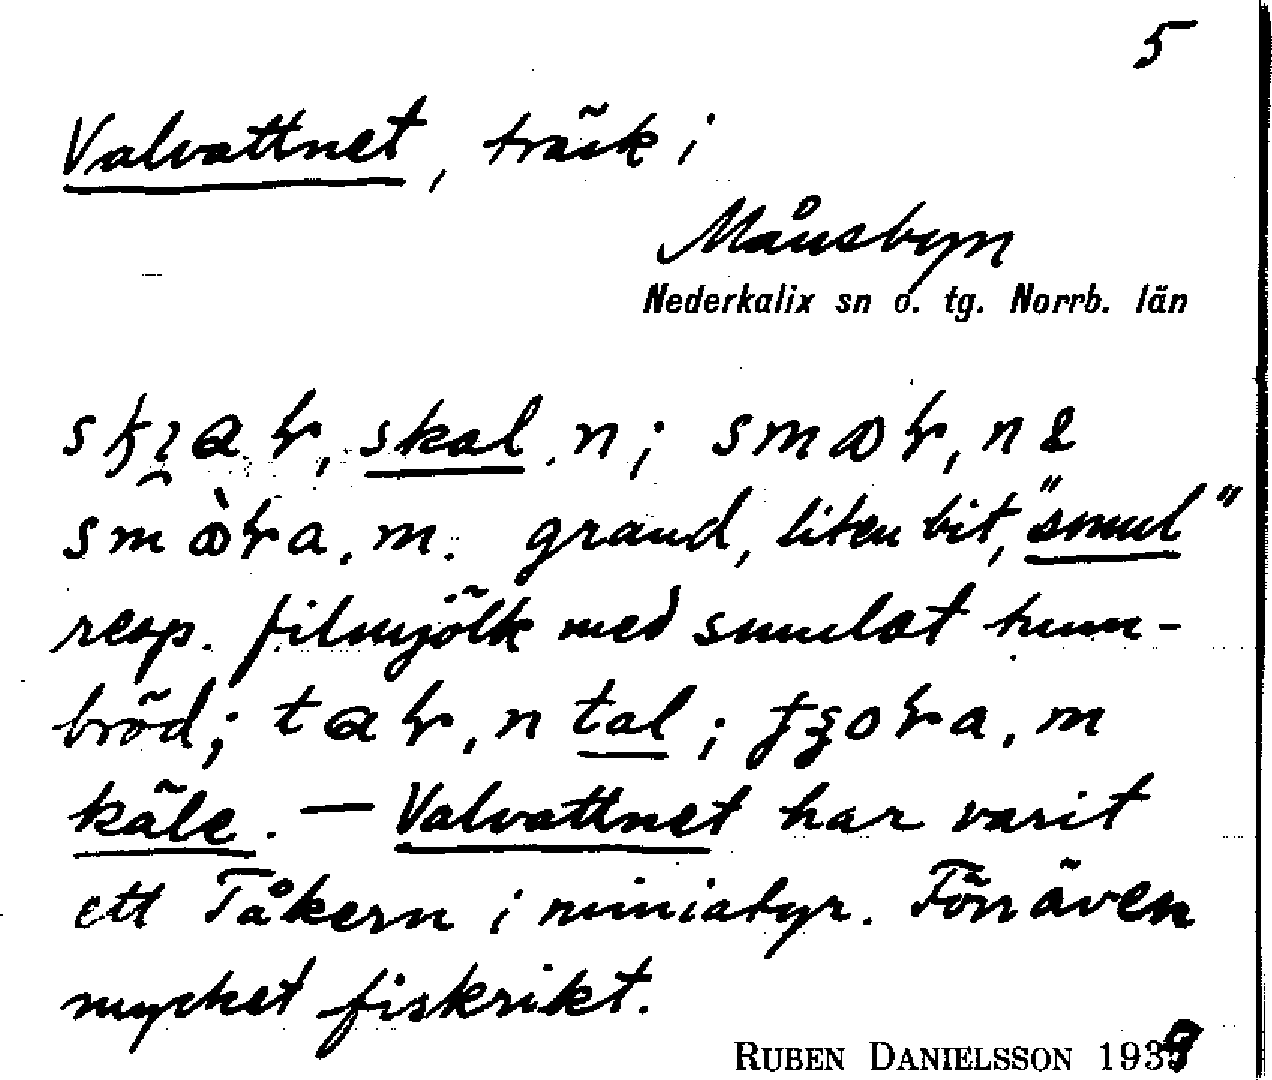 5
Valvattnet, träsk i
Månsbyn
Nederkalix sn o. tg. Norrb. län
skal. n;
m. grand, liten bit, "smul"
resp. filmjölk med smulat tunn-
bröd; n tal; m
käle. — Valvattnet har varit
ett Tåkern i miniatyr. Förr även
mycket fiskrikt.
RUBEN DANIELSSON 1939